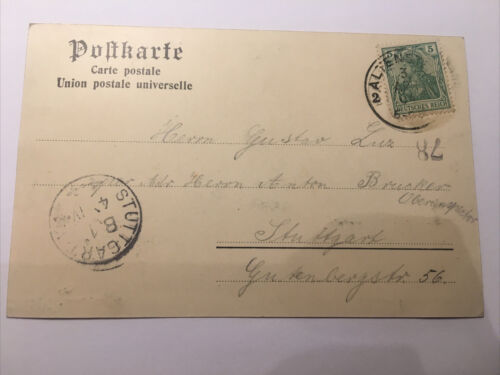 Postkarte
Carte postale
Union postale universelle
5
DEUTSCHES REICH
ALTEN
2
Herrn Gustav Luz
78
Adr Herrn Anton Brucker
Oberinspector
Stuttgart
Gutenbergstr. 56.
STUTTGART